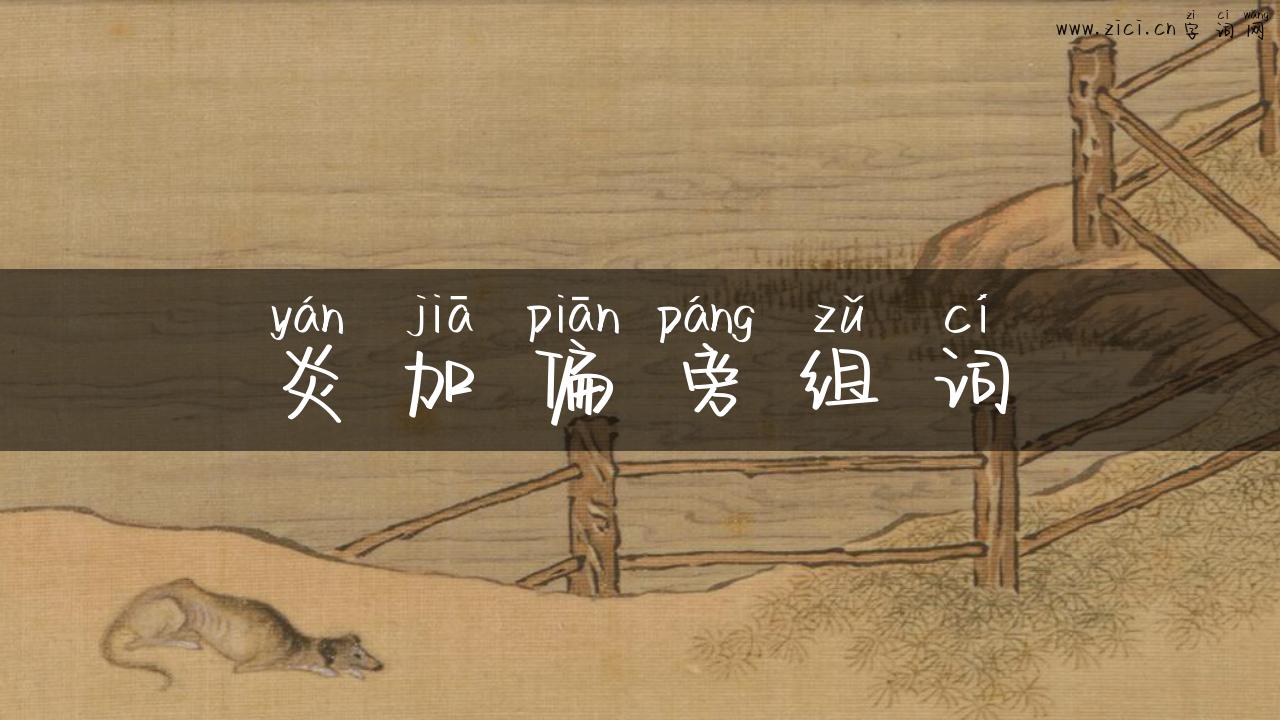 zì cí wǎng
www.zici.cn 字 词 网
yán jiā piān páng zǔ cí
炎 加 偏 旁 组 词